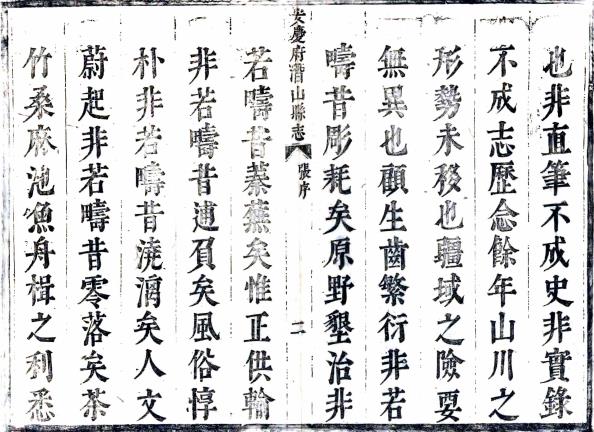 也非直筆不成史非實錄
不成志歷念餘年山川之
形勢未移也疆域之險要
無異也顧生齒繁衍非若
疇昔彫耗矣原野墾治非
安慶府潛山縣志 張序 二
若疇昔蓁蕪矣惟正供輸
非若疇昔逋負矣風俗惇
朴非若疇昔澆漓矣人文
蔚起非若疇昔零落矣茶
竹桑麻池漁舟楫之利悉